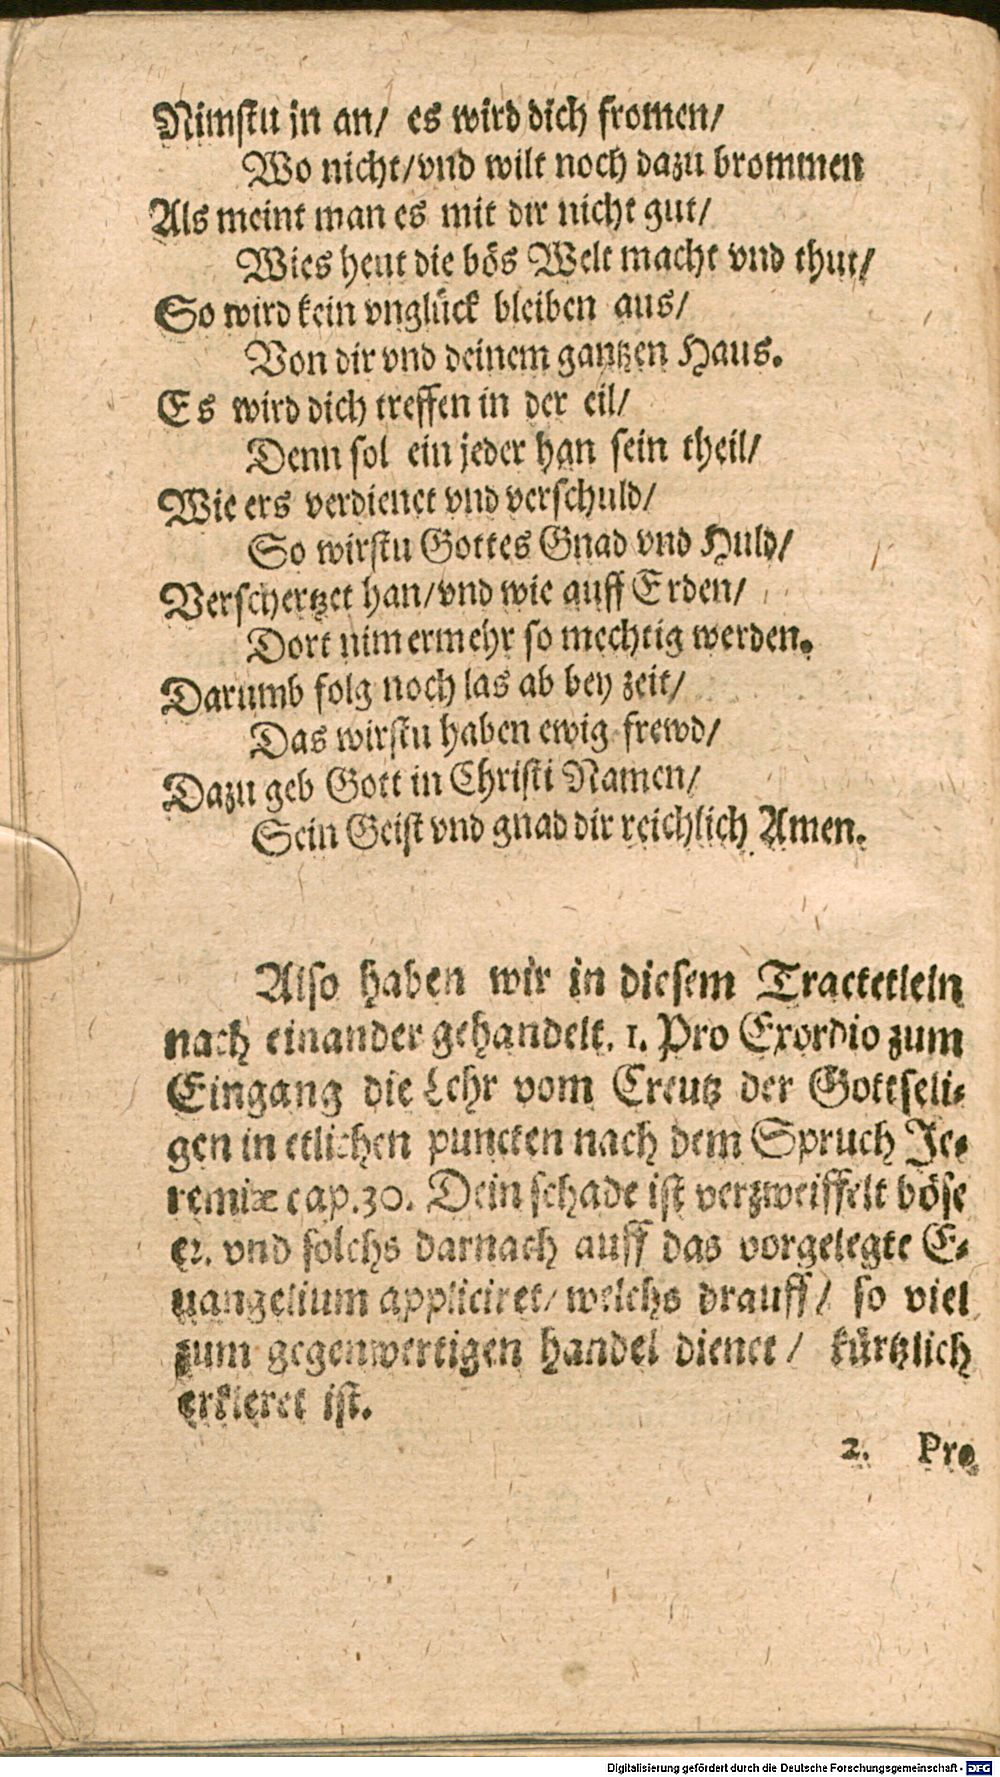 Nimstu jn an/ es wird dich fromen/
Wo nicht/vnd wilt noch dazu brommen
Als meint man es mit dir nicht gut/
Wies heut die bös Welt macht vnd thut/
So wird kein vnglück bleiben aus/
Von dir vnd deinem gantzen Haus.
Es wird dich treffen in der eil/
Denn sol ein jeder han sein theil/
Wie ers verdienet vnd verschuld/
So wirstu Gottes Gnad vnd Huld/
Verschertzet han/vnd wie auff Erden/
Dort nimermehr so mechtig werden.
Darumb folg noch las ab bey zeit/
Das wirstu haben ewig frewd/
Dazu geb Gott in Christi Namen/
Sein Geist vnd gnad dir reichlich Amen.
Also haben wir in diesem Tractetlein
nach einander gehandelt. 1. Pro Exordio zum
Eingang die Lehr vom Creutz der Gottseli-
gen in etlichen puncten nach dem Spruch Je-
remiæ cap.30. Dein schade ist verzweiffelt böse
ꝛc. vnd solchs darnach auff das vorgelegte E-
uangelium appliciret/ welchs drauff/ so viel
zum gegenwertigen handel dienet/ kürtzlich
erkleret ist.
2. Pro
Digitalisierung gefördert durch die Deutsche Forschungsgemeinschaft - DFG